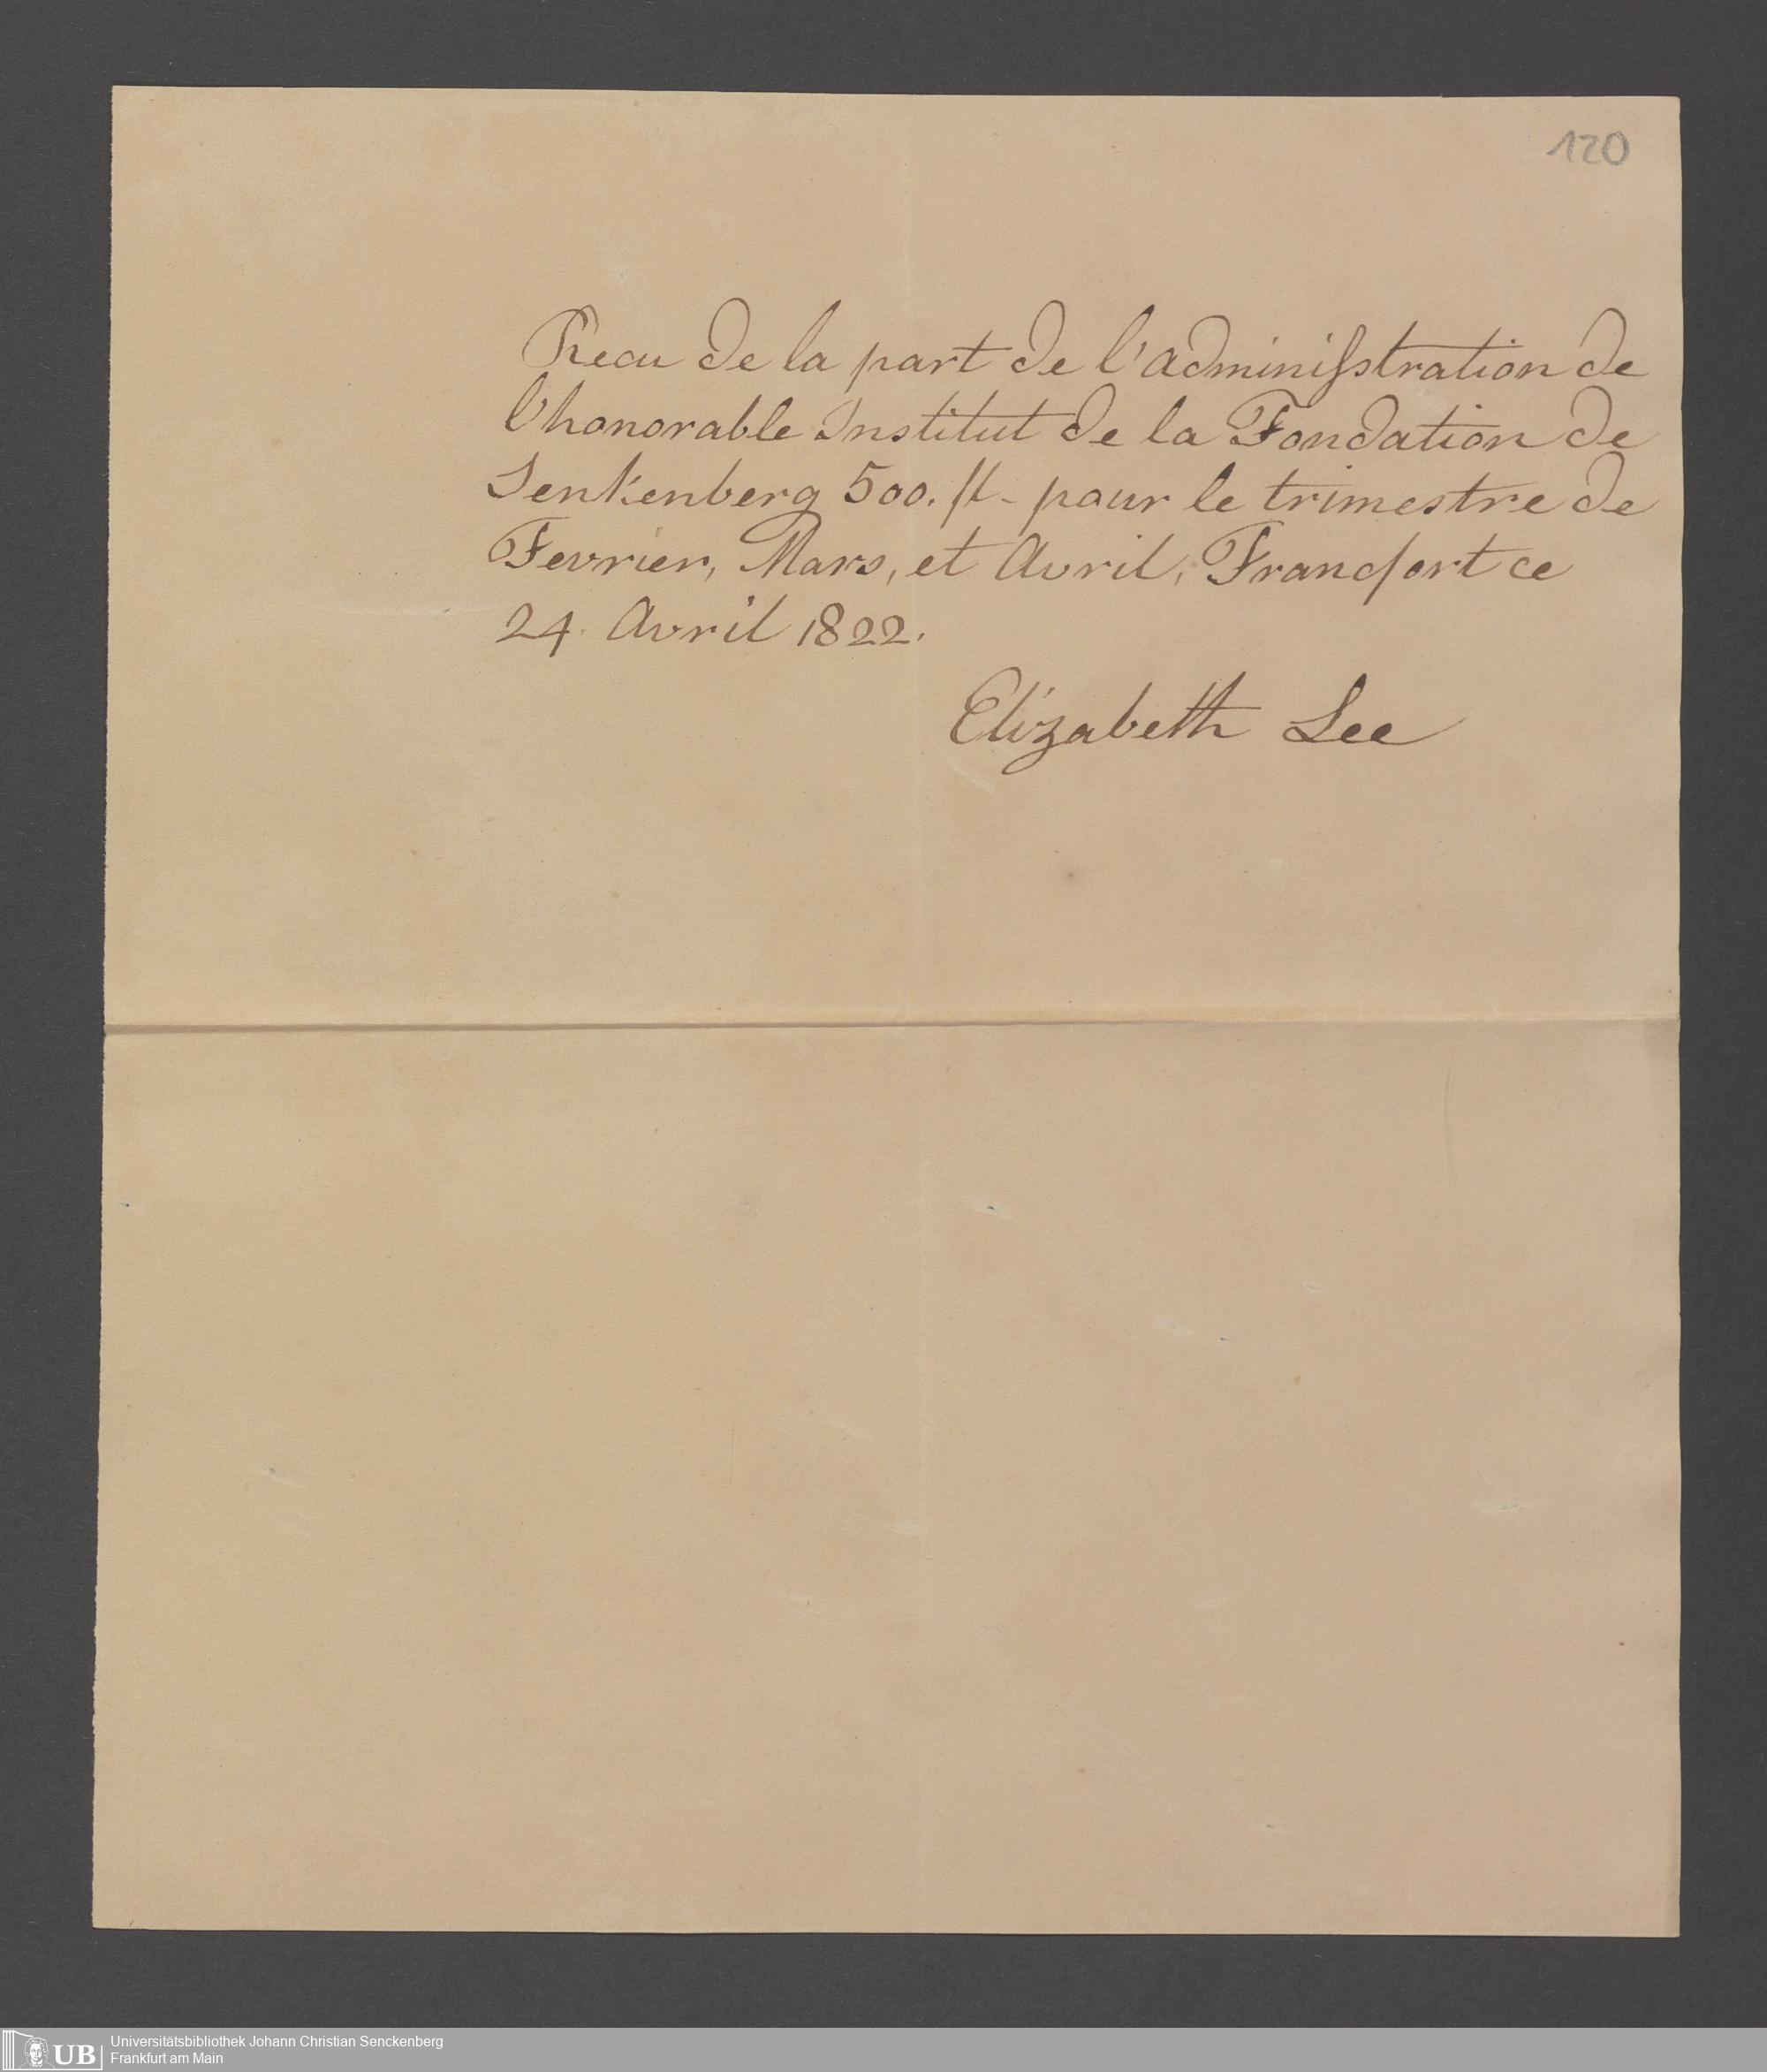 120
Recu de la part de l'adminiſstration de
l'honorable Institut de la Fondation de
Senkenberg 500. fl - pour le trimestre de
Fevrier, Mars, et Avril, Francfort ce
24. Avril 1822.
Elizabeth Lee
UB
Universitätsbibliothek Johann Christian Senckenberg
Frankfurt am Main